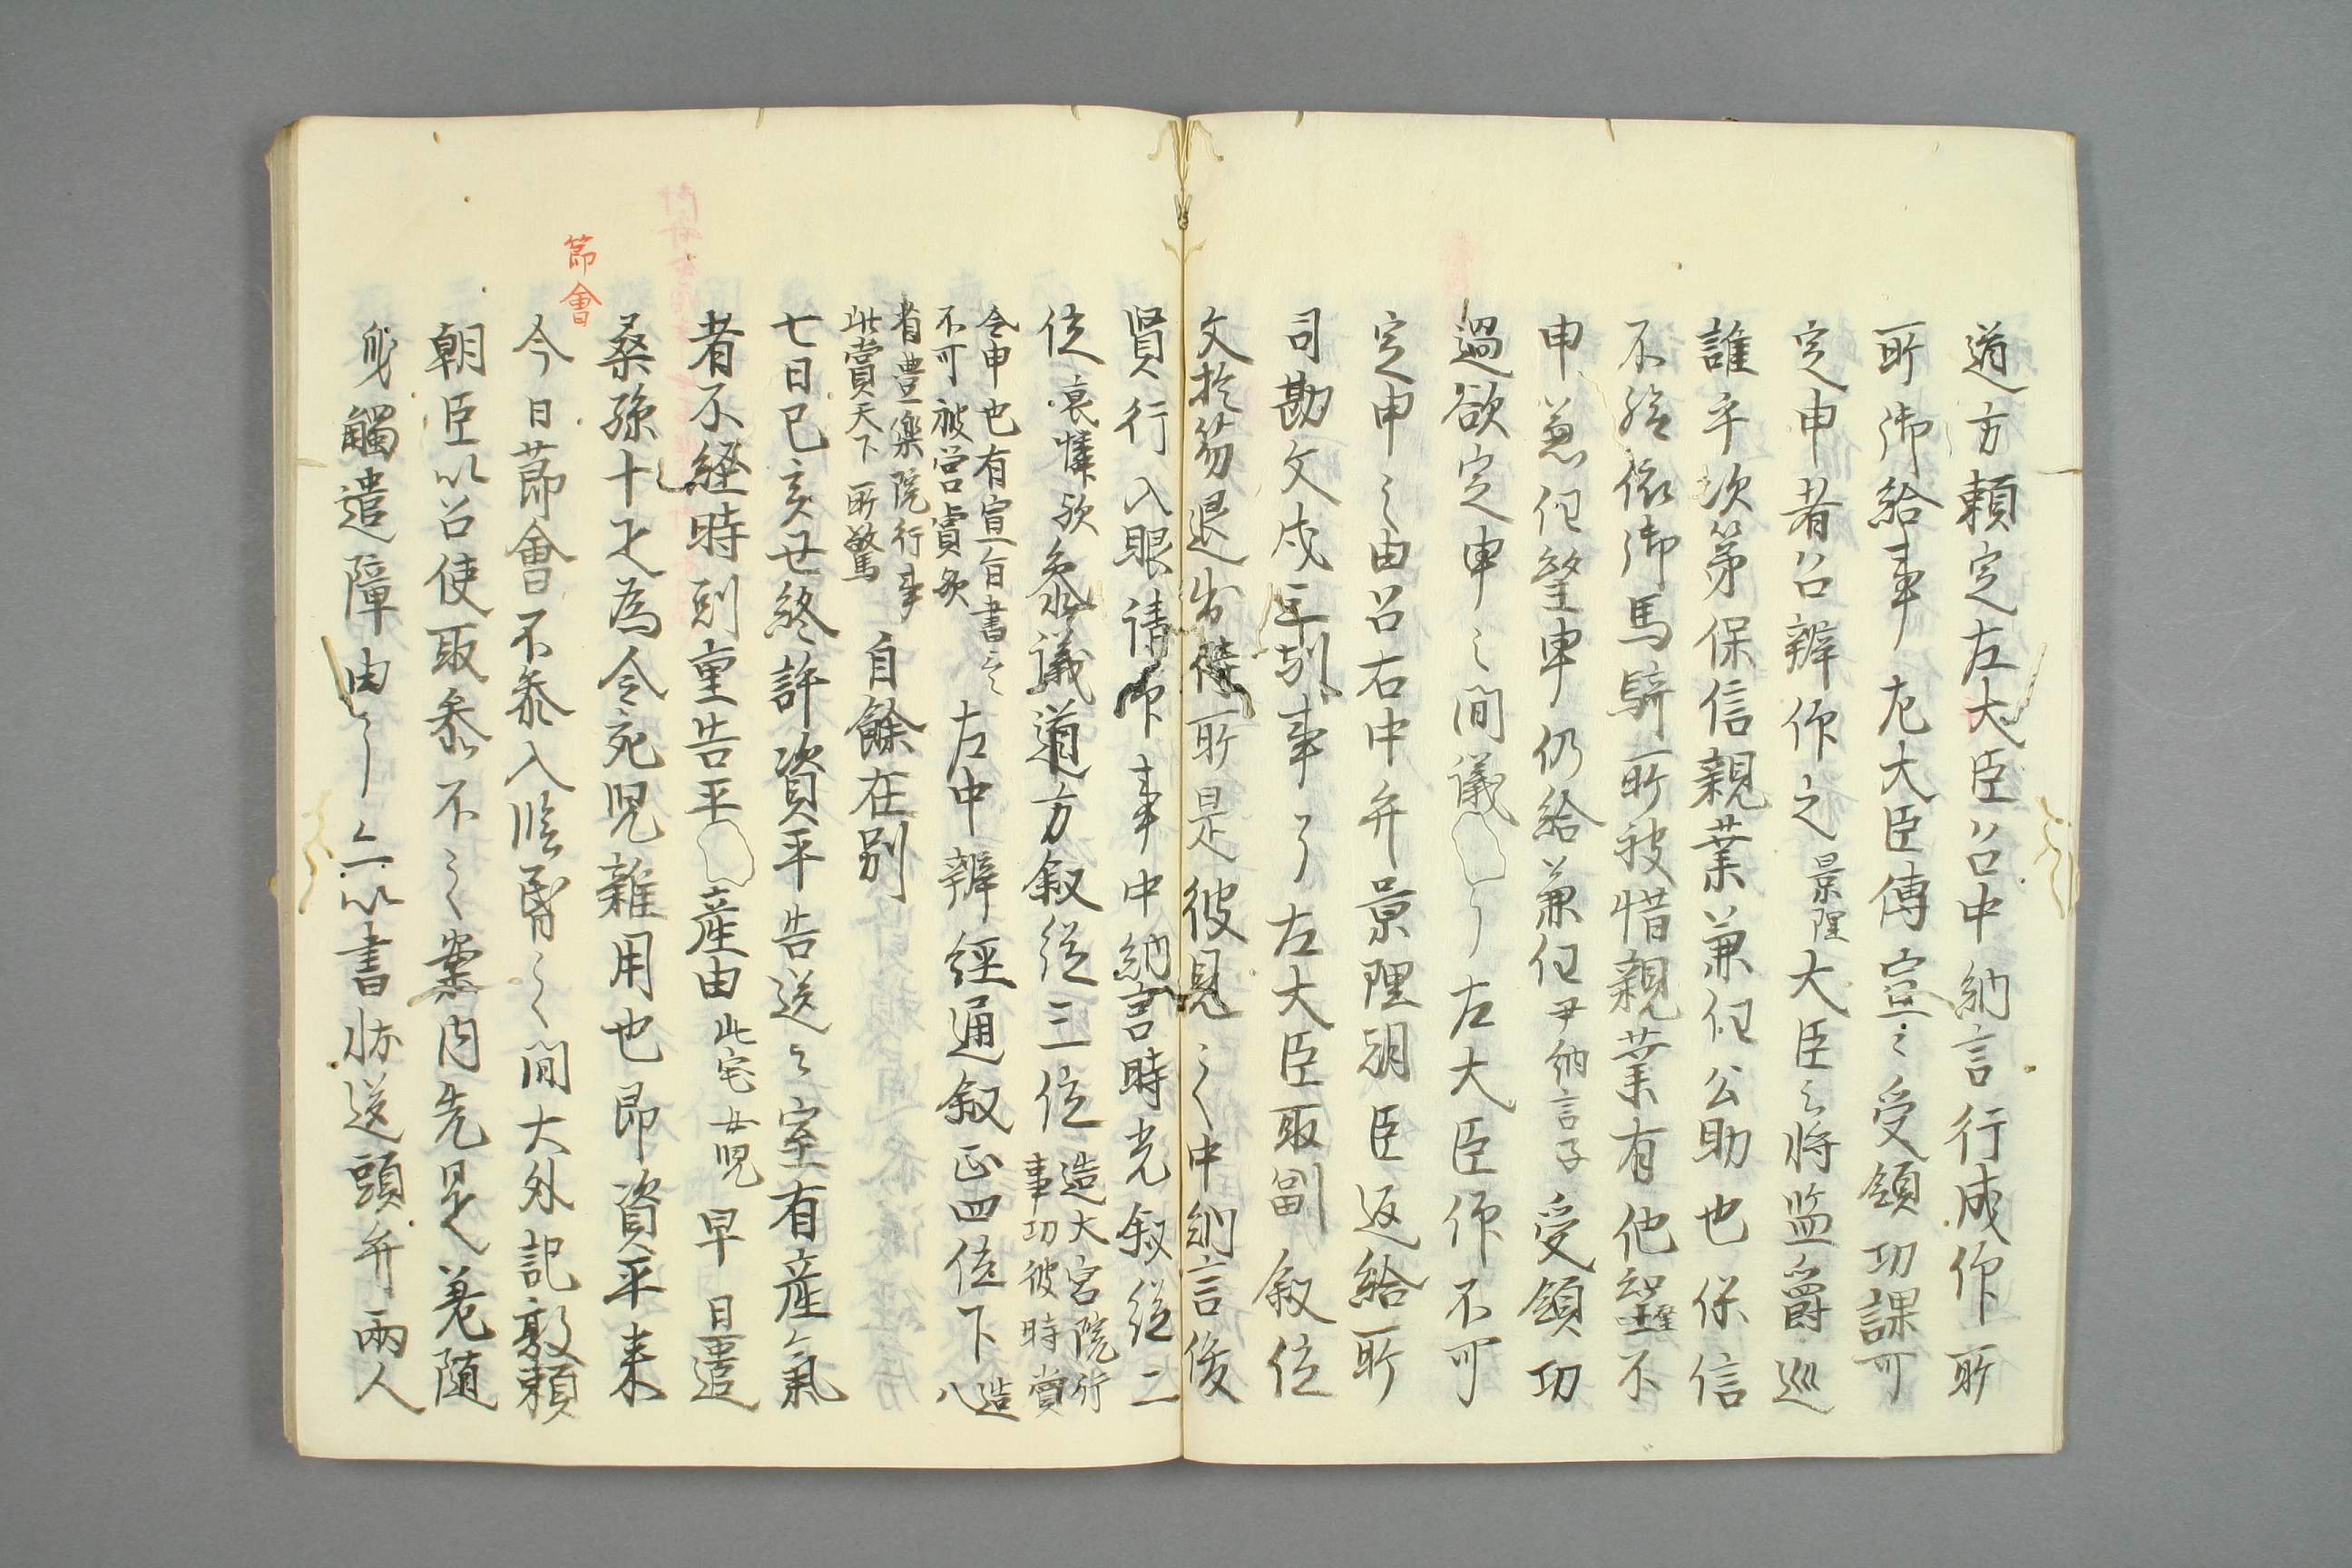 道方頼定左大臣以召中納言行成作所
所御給事左大臣傳宣之受領功課可
定申者以召辨作之景理大臣之将監爵巡
誰乎次第保信親業兼任公助也保信
不給依御馬騎所被惜親業有他望不
申兼任望申仍給兼任尹納言子受領功
過欲定申之間儀左大臣作不可
定申之由召右中弁景理朝臣返給所
司勘文戌三刻事了左大臣取副叙位
文於笏退出待所是彼見之中納言俊
賢行入眼請印事中納言時光叙従二
位哀憐歟参議道方叙従三位造大宮院行
事功彼時賞
令申也有宣旨書之
不可被営賞矣左中辨経通叙正四位下造
八
省豊樂院行事
此賞天下所驚自餘在別
七日己亥世終許資平告送之室有産氣
者不経時剋重告平産由此宅女児早旦遣
桑孫十疋為令宛児雑用也即資平来
節會
今日節會不参入臨昏之間大外記敦頼
朝臣以召使取参不之案内先是差随
身觸遣障由了亦以書状送頭弁両人